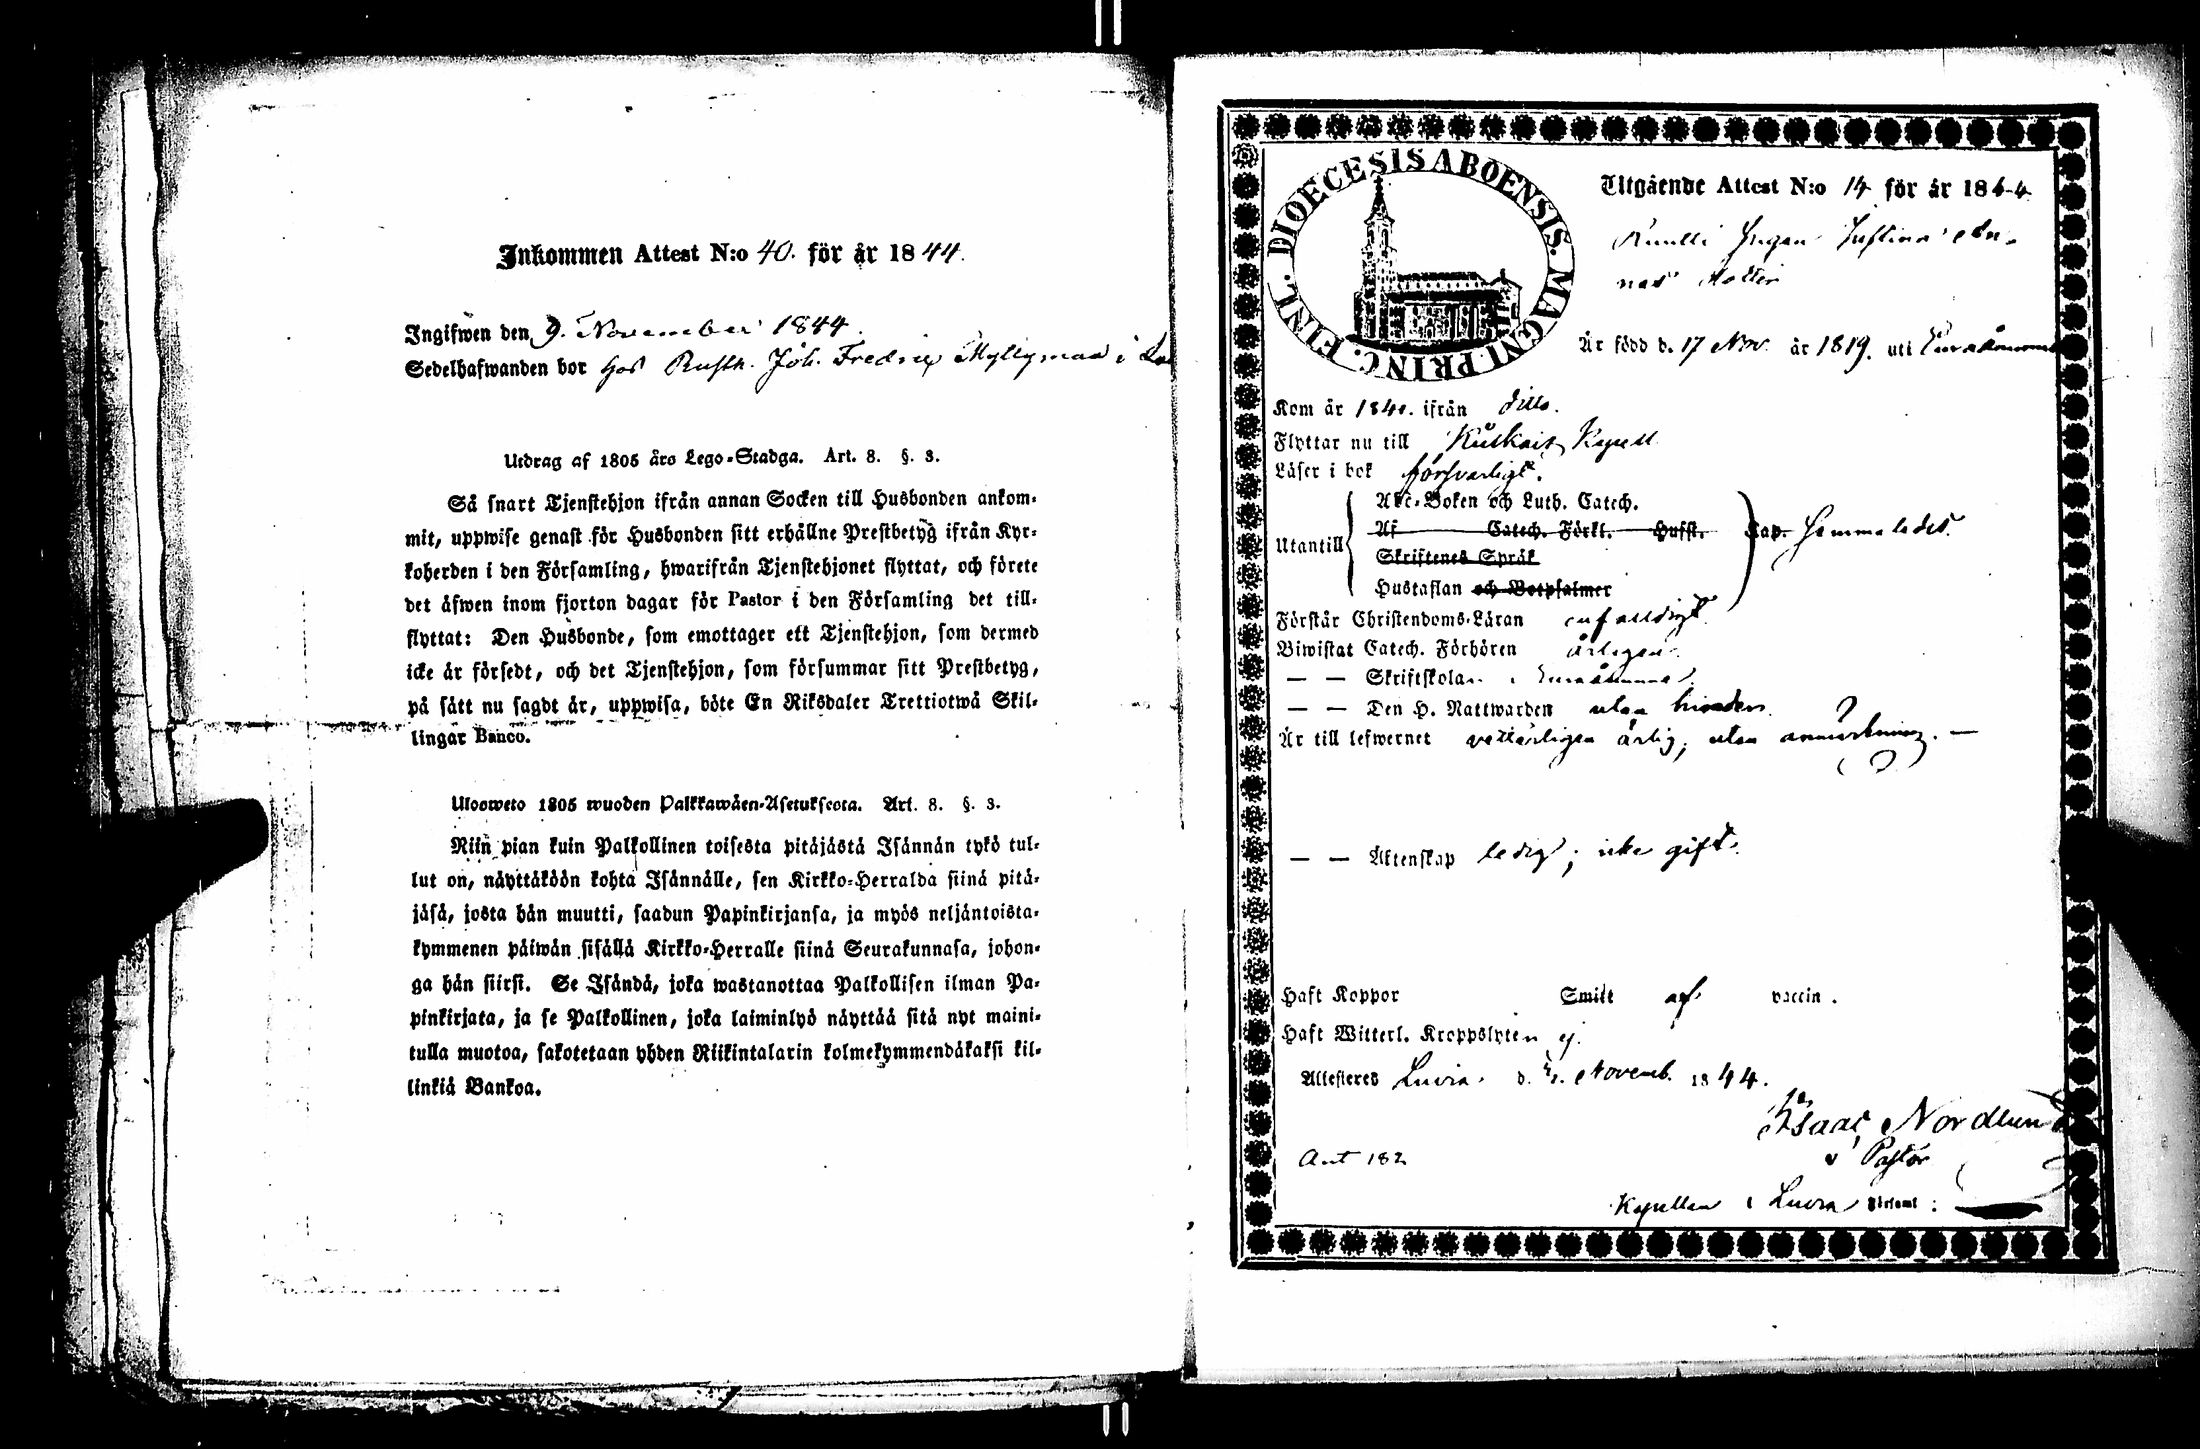 Inkommen Attest N:o 40. för år 1844.
Ingifwen den 9. November 1844.
Sedelhafwanden bor hos Rusth. Joh. Fredric Myllymaa i
Utdrag af 1805 års Lego-Stadga. Art. 8. §. 3.
Så snart Tjenstehjon ifrån annan Socken till Husbonden ankom-
mit, uppwise genast för Husbonden sitt erhållne Prestbetyg ifrån Kyr-
koherden i den Församling, hwarifrån Tjenstehjonet flyttat, och förete
det äfwen inom fjorton dagar för Pastor i den Församling det till-
flyttat: Den Husbonde, som emottager ett Tjenstehjon, som dermed
icke är försedt, och det Tjenstehjon, som försummar sitt Prestbetyg,
på sätt nu sagdt är, uppwisa, böte En Riksdaler Trettiotwå Skil-
lingar Banco.
Ulosweto 1805 wuoden Palkkawäen-Asetuksesta. Art. 8. §. 3.
Niin pian kuin Palkollinen toisesta pitäjästä Isännän tykö tul-
lut on, näyttäköön kohta Isännälle, sen Kirkko-Herralda siinä pitä-
jäsä, josta hän muutti, saadun Papinkirjansa, ja myös neljäntoista-
kymmenen päiwän sisällä Kirkko-Herralle siinä Seurakunnasa, johon-
ga hän siirsi. Se Isändä, joka wastanottaa Palkollisen ilman Pa-
pinkirjata, ja se Palkollinen, joka laiminlyö näyttää sitä nyt maini-
tulla muotoa, sakotetaan yhden Riikintalarin kolmekymmendäkaksi kil-
linkiä Bankoa.
DIOECESIS ABOENSIS. MAGNI PRINC. FINL.
Utgående Attest N:o 14 för år 1844
Pigan Justina An-
nas dotter
Är född d. 17 Nov. år 1819. uti Euraåminne
Kom år 1840. ifrån ditto.
Flyttar nu till Kapell
Läser i bok försvarligt.
Utantill
Abc-Boken och Luth. Catech.
Af Catech. Förkl. Hufst. Cap. Hemmaledes.
Skriftenes Språk
Hustaflan och Botpsalmer
Förstår Christendoms-Läran enfaldigt
Biwistat Catech. Förhören årligen.
— — Skriftskolan i Euraåminne
— — Den H. Nattwarden utan hinder.
Är till lefwernet veterligen ärlig, utan anmärkning. —
— — Äktenskap ledig; icke gift.
Haft Koppor Smitt af vaccin.
Haft Witterl. Kroppslyten ej.
Attesteres Luvia. d. Novemb. 1844.
Isaac Nordlund
v Pastor
Ant 182
Kapellan i Luvia Församl: